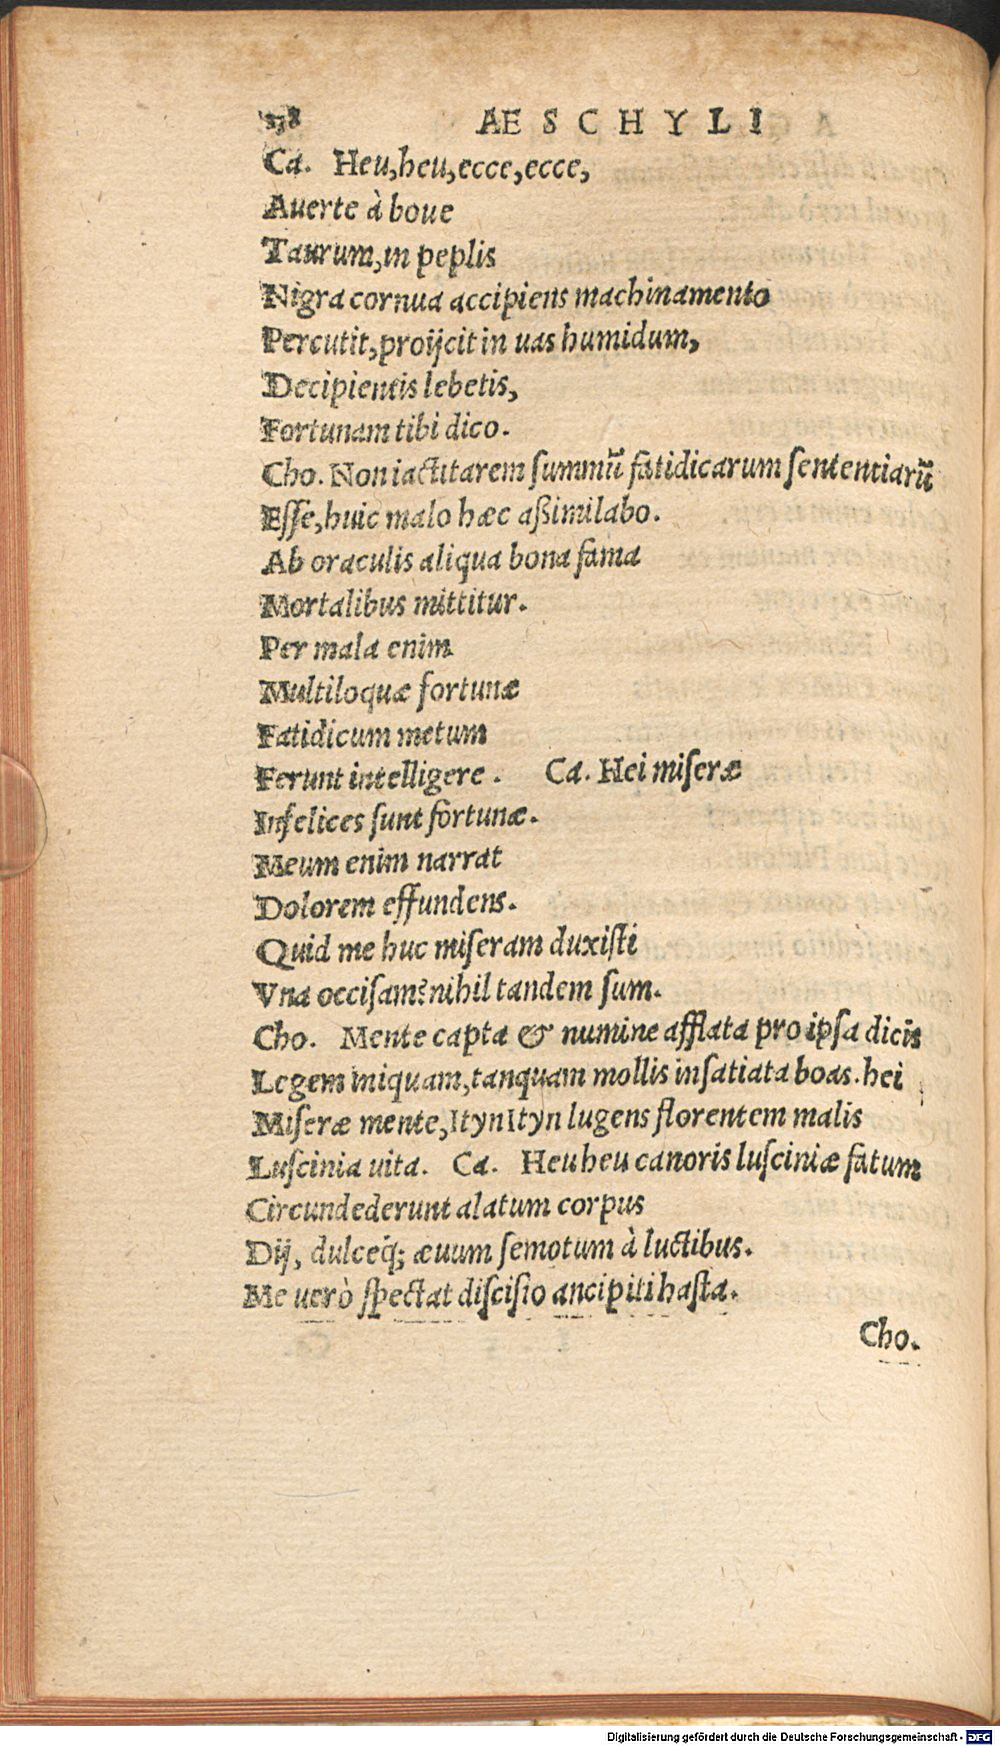 138 AESCHYLI
Ca. Heu, heu, ecce, ecce,
Auerte à boue
Taurum, in peplis
Nigra cornua accipiens machinamento
Percutit, proijcit in uas humidum,
Decipientis lebetis,
Fortunam tibi dico.
Cho. Non iactitarem summũ fatidicarum sententiarũ
Esse, huic malo hæc aßimilabo.
Ab oraculis aliqua bona fama
Mortalibus mittitur.
Per mala enim
Multiloquæ fortunæ
Fatidicum metum
Ferunt intelligere. Ca. Hei miseræ
Infelices sunt fortunæ.
Meum enim narrat
Dolorem effundens.
Quid me huc miseram duxisti
Vna occisam? nihil tandem sum.
Cho. Mente capta & numine afflata pro ipsa dicis
Legem iniquam, tanquam mollis insatiata boas. hei
Miseræ mente, Ityn Ityn lugens florentem malis
Luscinia uita. Ca. Heu heu canoris lusciniæ fatum
Circundederunt alatum corpus
Dij, dulceq́; æuum semotum à luctibus.
Me uerò spectat discisio ancipiti hasta.
Cho.
Digitalisierung gefördert durch die Deutsche Forschungsgemeinschaft - DFG